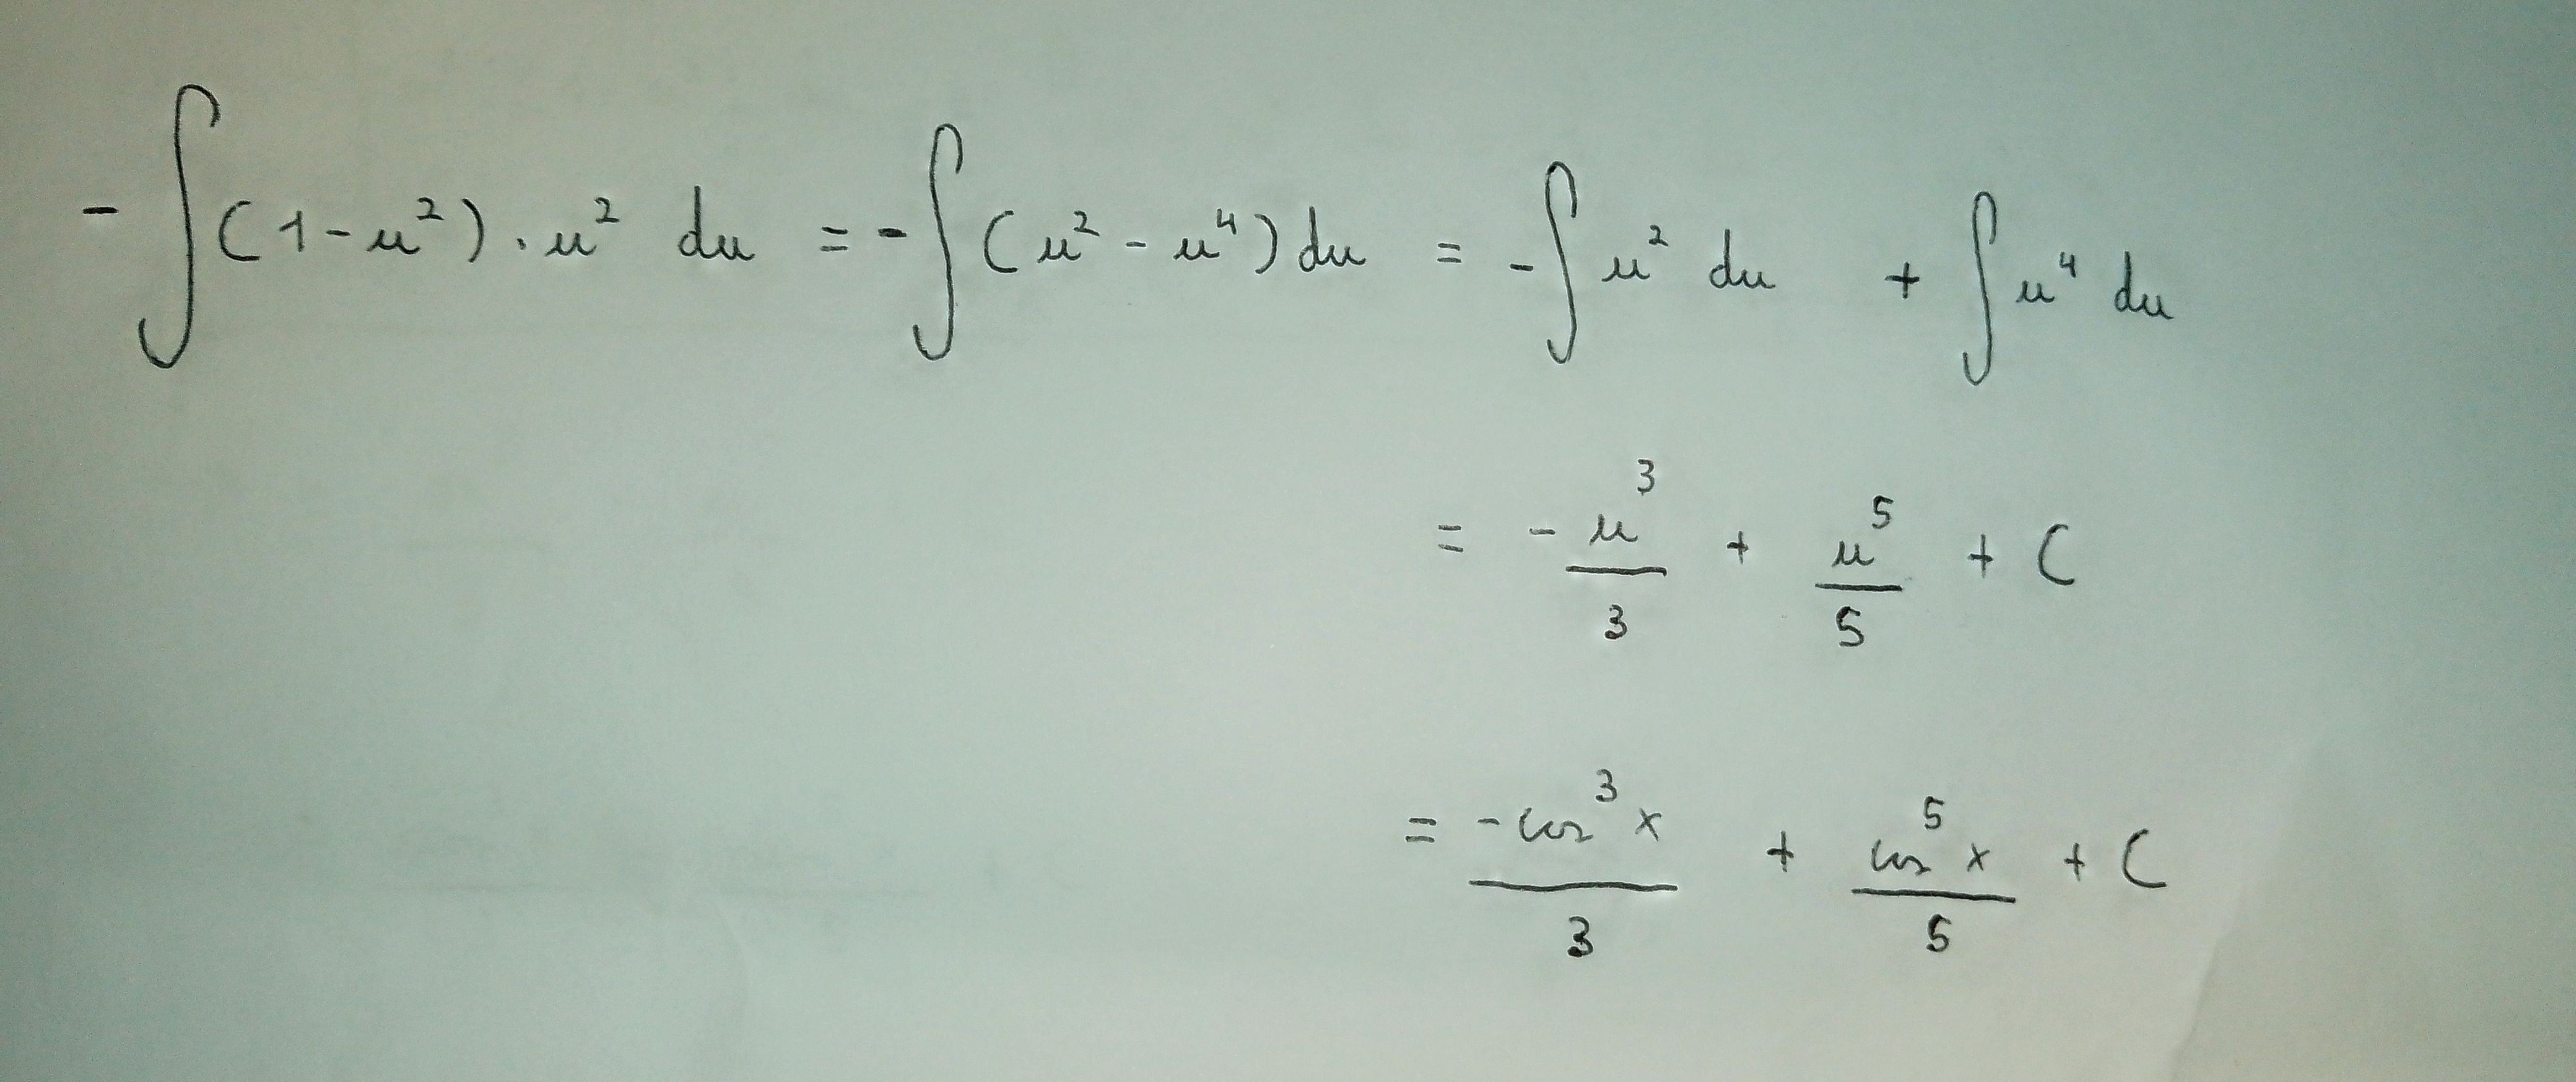 -∫(1-u²).u² du = -∫(u² - u⁴) du = -∫u² du + ∫u⁴ du
= -u³/3 + u⁵/5 + C
= -cos³x/3 + cos⁵x/5 + C